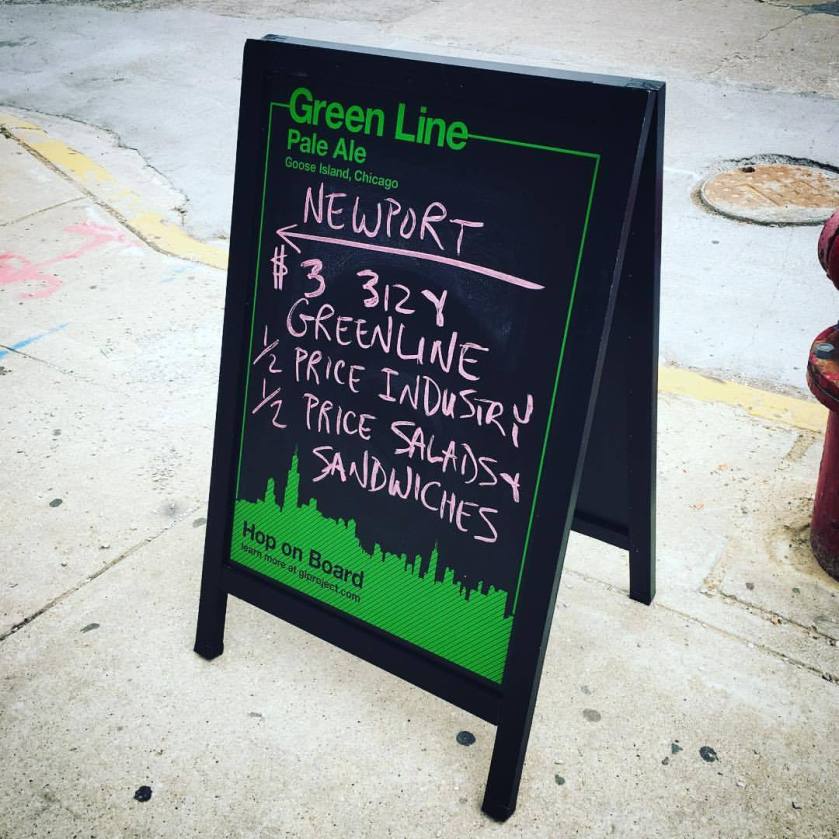 Green Line
Pale Ale
Goose Island, Chicago
NEWPORT
$3 312 Y
GREENLINE
1/2 PRICE INDUSTRY
1/2 PRICE SALADS Y
SANDWICHES
Hop on Board
learn more at glproject.com